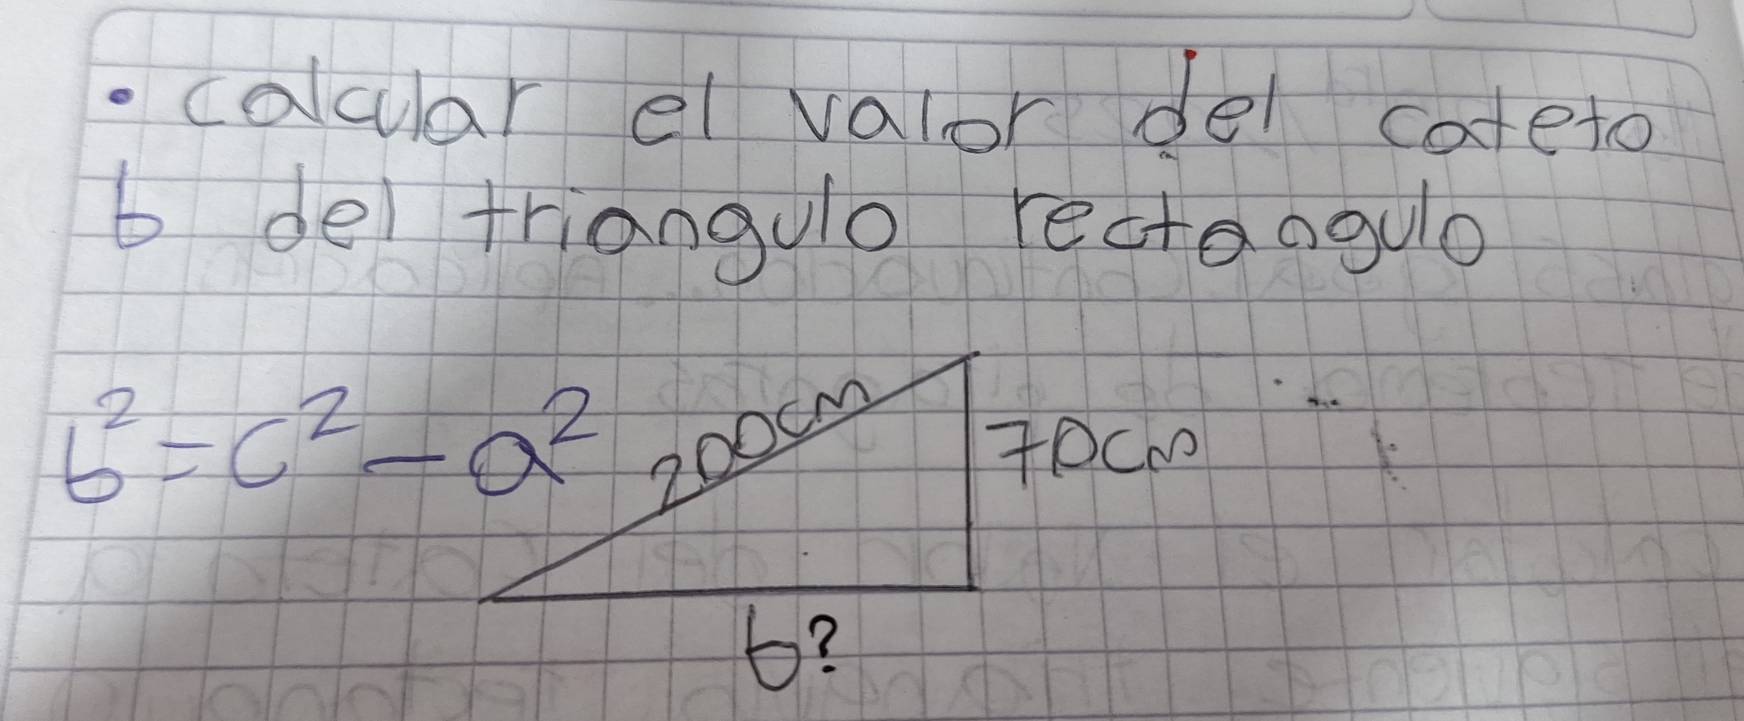 • calcular el valor del cateto
b del triangulo rectangulo
b² = c² - a²
200cm
70cm
b?